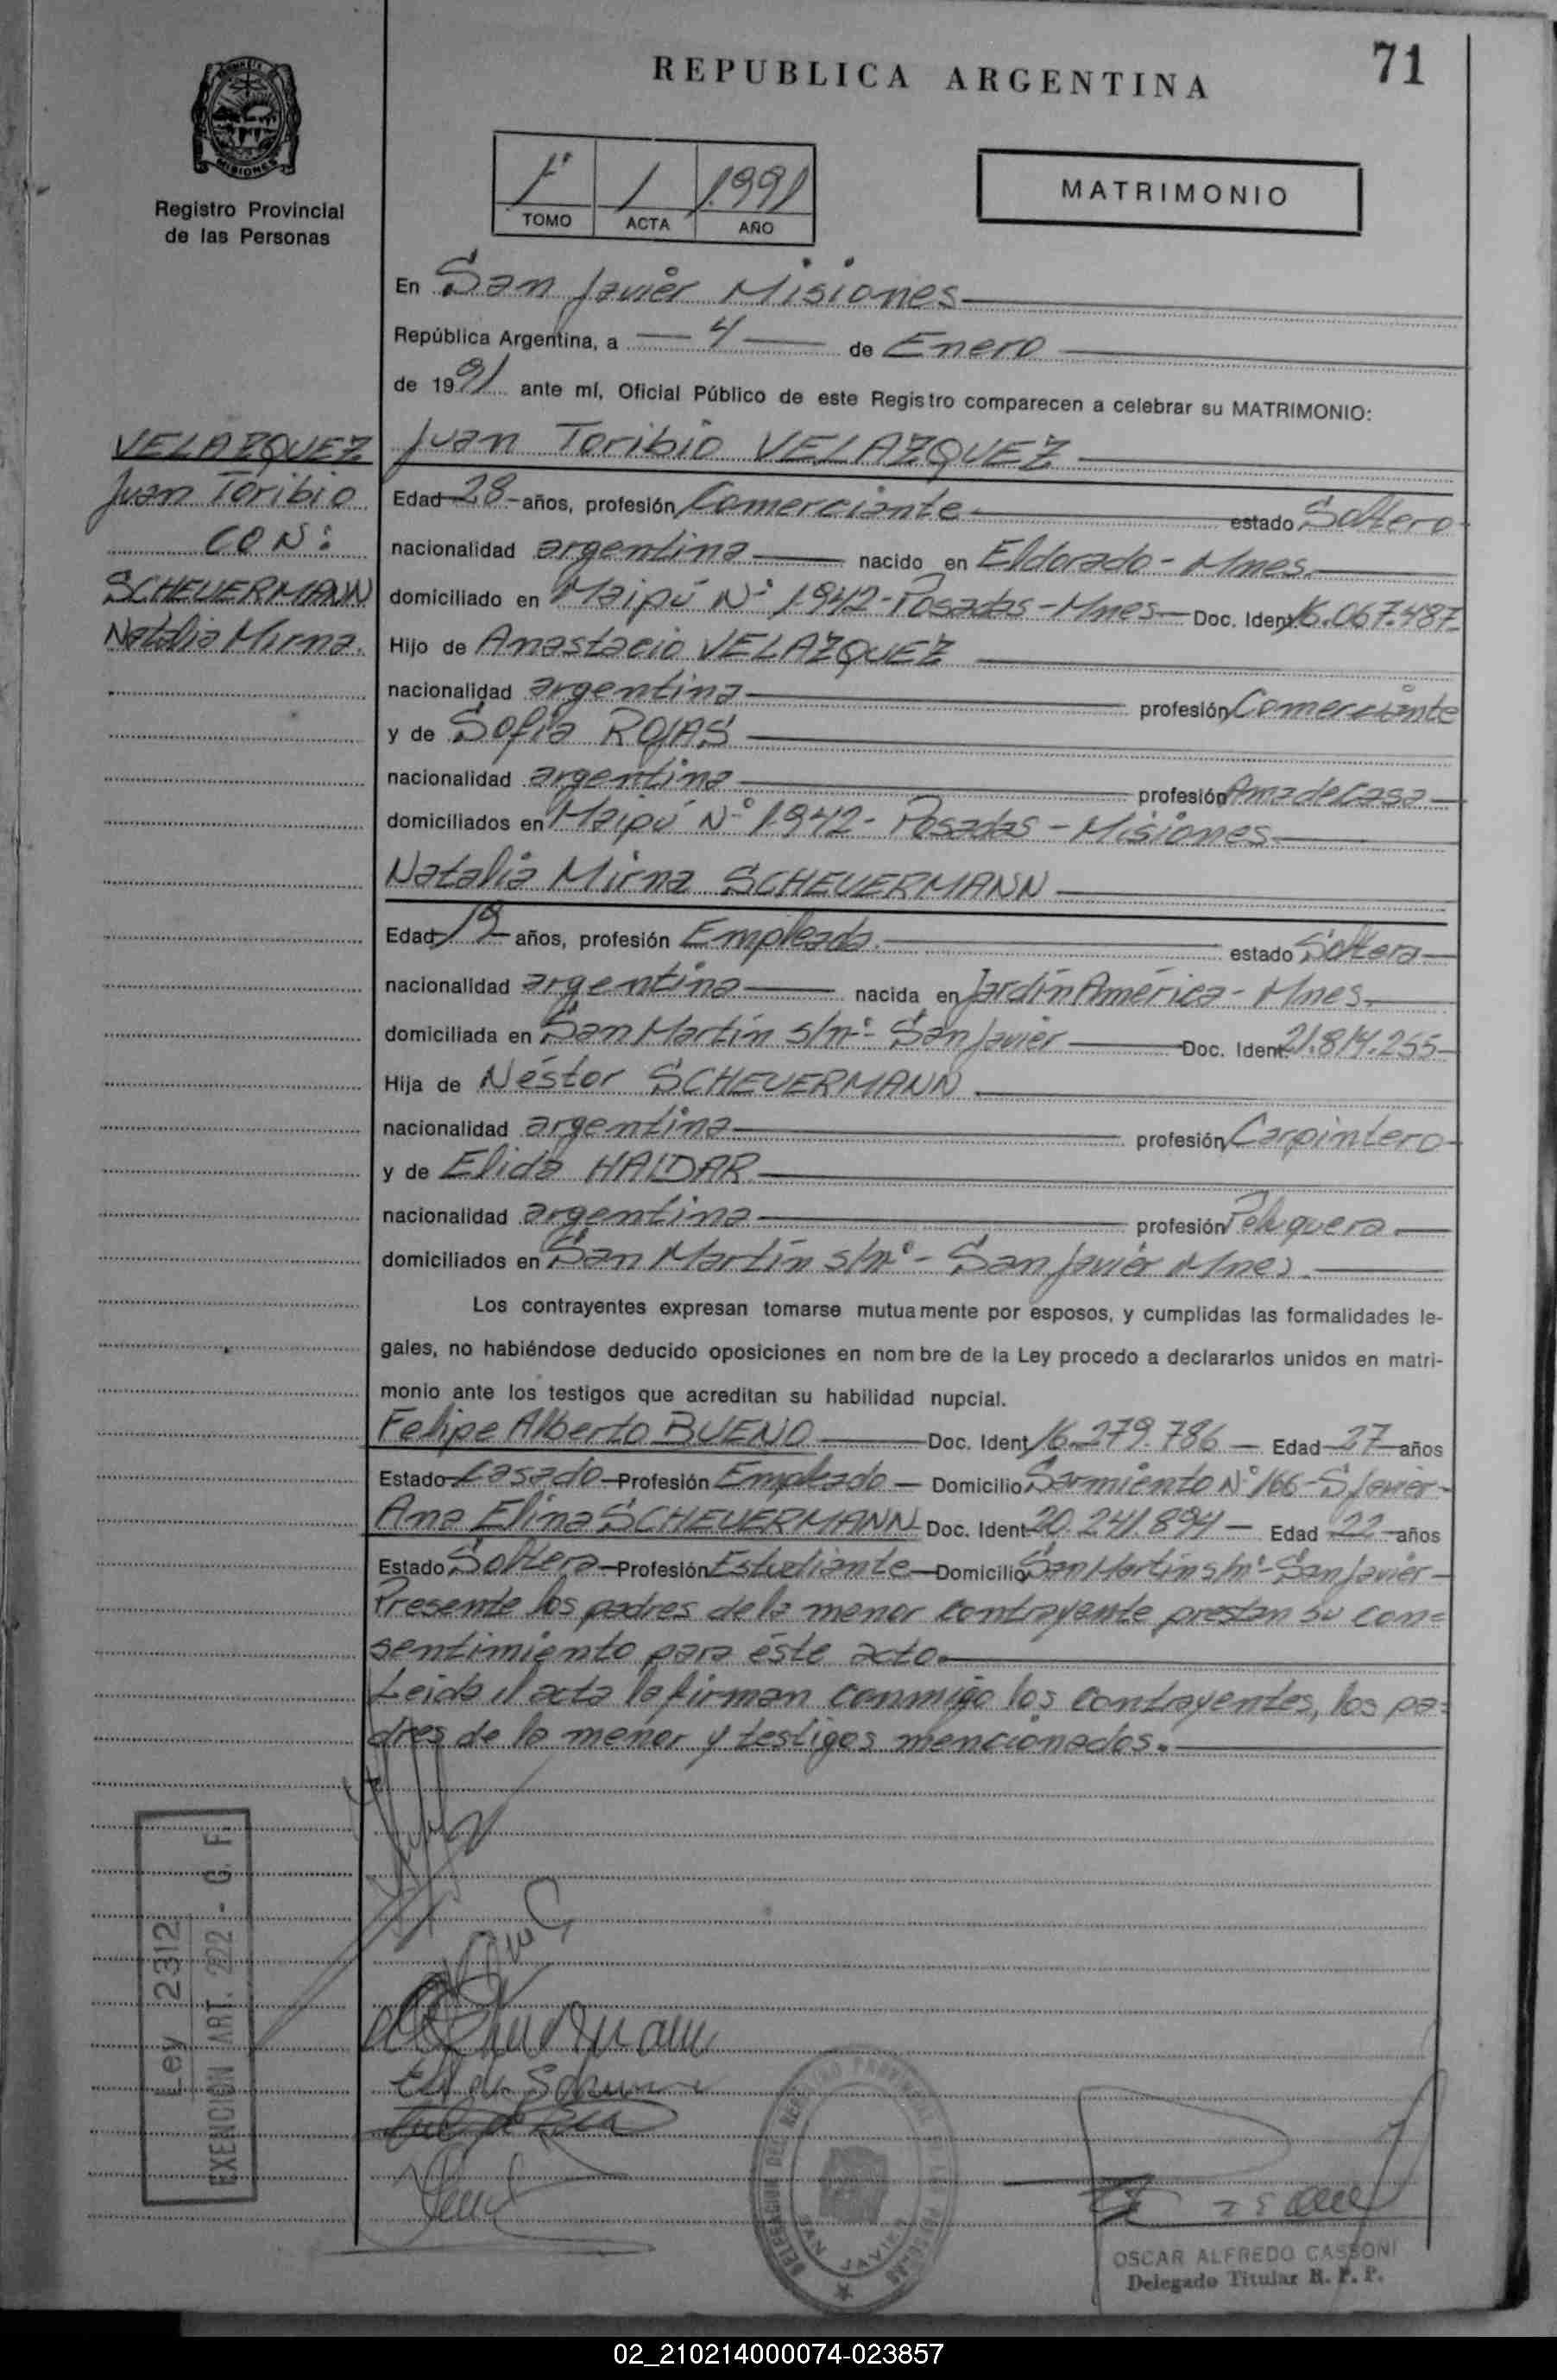 REPUBLICA ARGENTINA
71
MISIONES
Registro Provincial
de las Personas
1º 1 1.991
TOMO ACTA AÑO
MATRIMONIO
En San Javier Misiones
República Argentina, a 4 de Enero
de 1991 ante mí, Oficial Público de este Registro comparecen a celebrar su MATRIMONIO:
VELAZQUEZ
Juan Toribio
CON:
SCHEUERMANN
Natalia Mirna.
Juan Toribio VELAZQUEZ
Edad 28 años, profesión Comerciante estado Soltero
nacionalidad argentina nacido en Eldorado - Mnes.
domiciliado en Maipú Nº 1.942 - Posadas - Mnes Doc. Ident. 16.067.487
Hijo de Anastacio VELAZQUEZ
nacionalidad argentina profesión Comerciante
y de Sofía ROJAS
nacionalidad argentina profesión Ama de casa
domiciliados en Maipú Nº 1.942 - Posadas - Misiones
Natalia Mirna SCHEUERMANN
Edad 19 años, profesión Empleada. estado Soltera
nacionalidad argentina nacida en Jardín América - Mnes.
domiciliada en San Martín s/nº - San Javier Doc. Ident. 21.814.255
Hija de Néstor SCHEUERMANN
nacionalidad argentina profesión Carpintero
y de Elida HALDAR
nacionalidad argentina profesión Peluquera
domiciliados en San Martín s/nº - San Javier Mnes.
Los contrayentes expresan tomarse mutuamente por esposos, y cumplidas las formalidades le-
gales, no habiéndose deducido oposiciones en nombre de la Ley procedo a declararlos unidos en matri-
monio ante los testigos que acreditan su habilidad nupcial.
Felipe Alberto BUENO Doc. Ident. 16.279.786 Edad 27 años
Estado Casado Profesión Empleado Domicilio Sarmiento Nº 166 - S Javier
Ana Elina SCHEUERMANN Doc. Ident 20.241.894 Edad 22 años
Estado Soltera Profesión Estudiante Domicilio San Martín s/nº - San Javier
Presente los padres de la menor contrayente prestan su con=
sentimiento para éste acto.
Leida el acta la firman conmigo los contrayentes, los pa=
dres de la menor y testigos mencionados.
Ley 2312
EXENCION ART. 222 - G. F.
DELEGACION DEL REGISTRO PROVINCIAL DE LAS PERSONAS
SAN JAVIER
OSCAR ALFREDO CASSONI
Delegado Titular R. P. P.
02_210214000074-023857